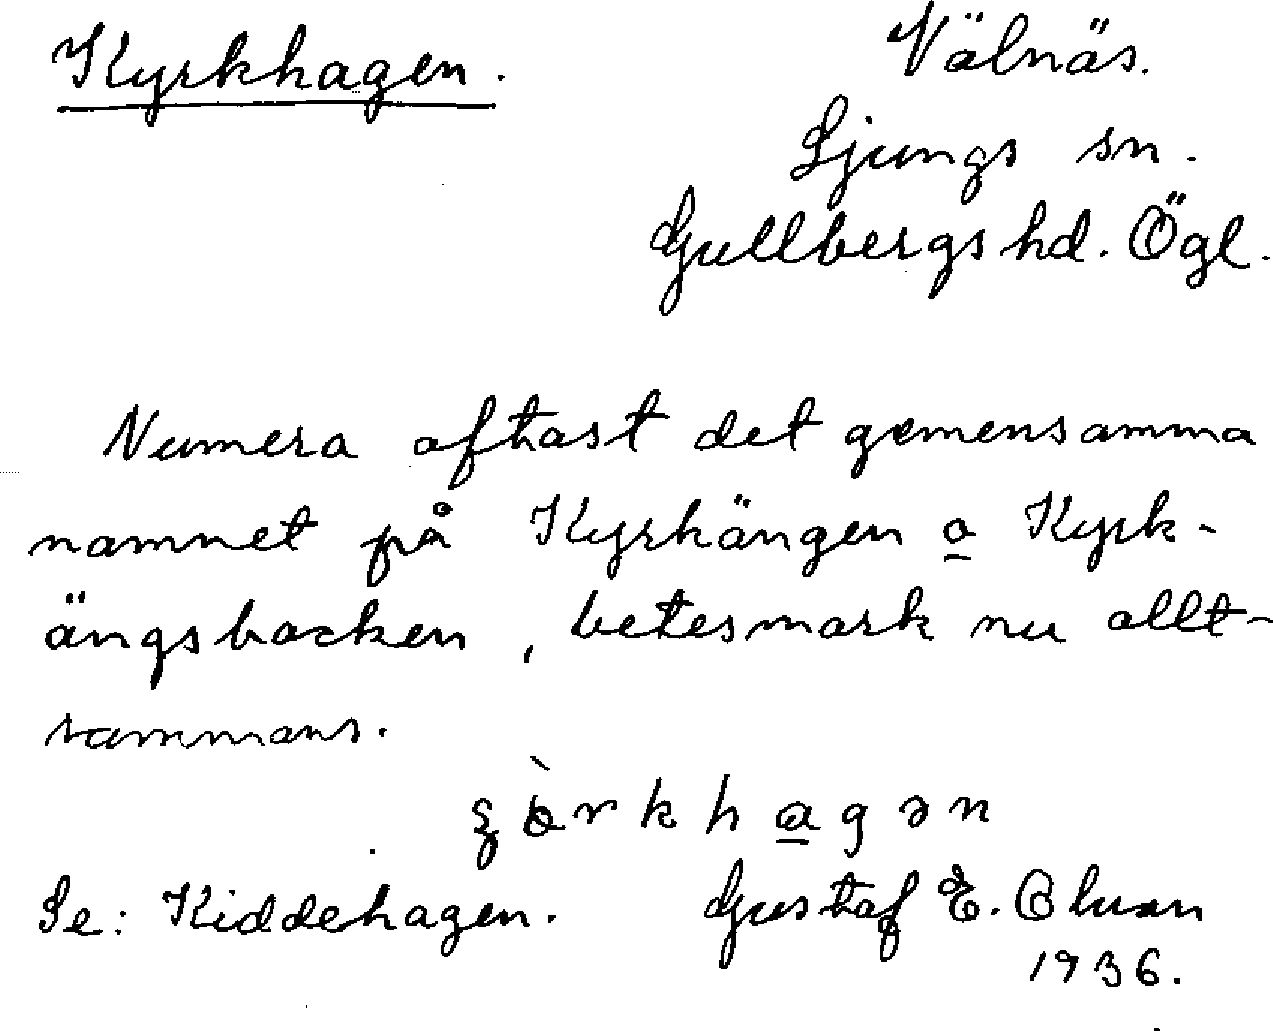 Kyrkhagen.
Välnäs.
Ljungs sn.
Gullbergs hd. Ögl.
Numera oftast det gemensamma
namnet på Kyrkängen o Kyrk-
ängsbacken, betesmark nu allt-
sammans.
Se: Kiddehagen.
Gustaf E.
1936.